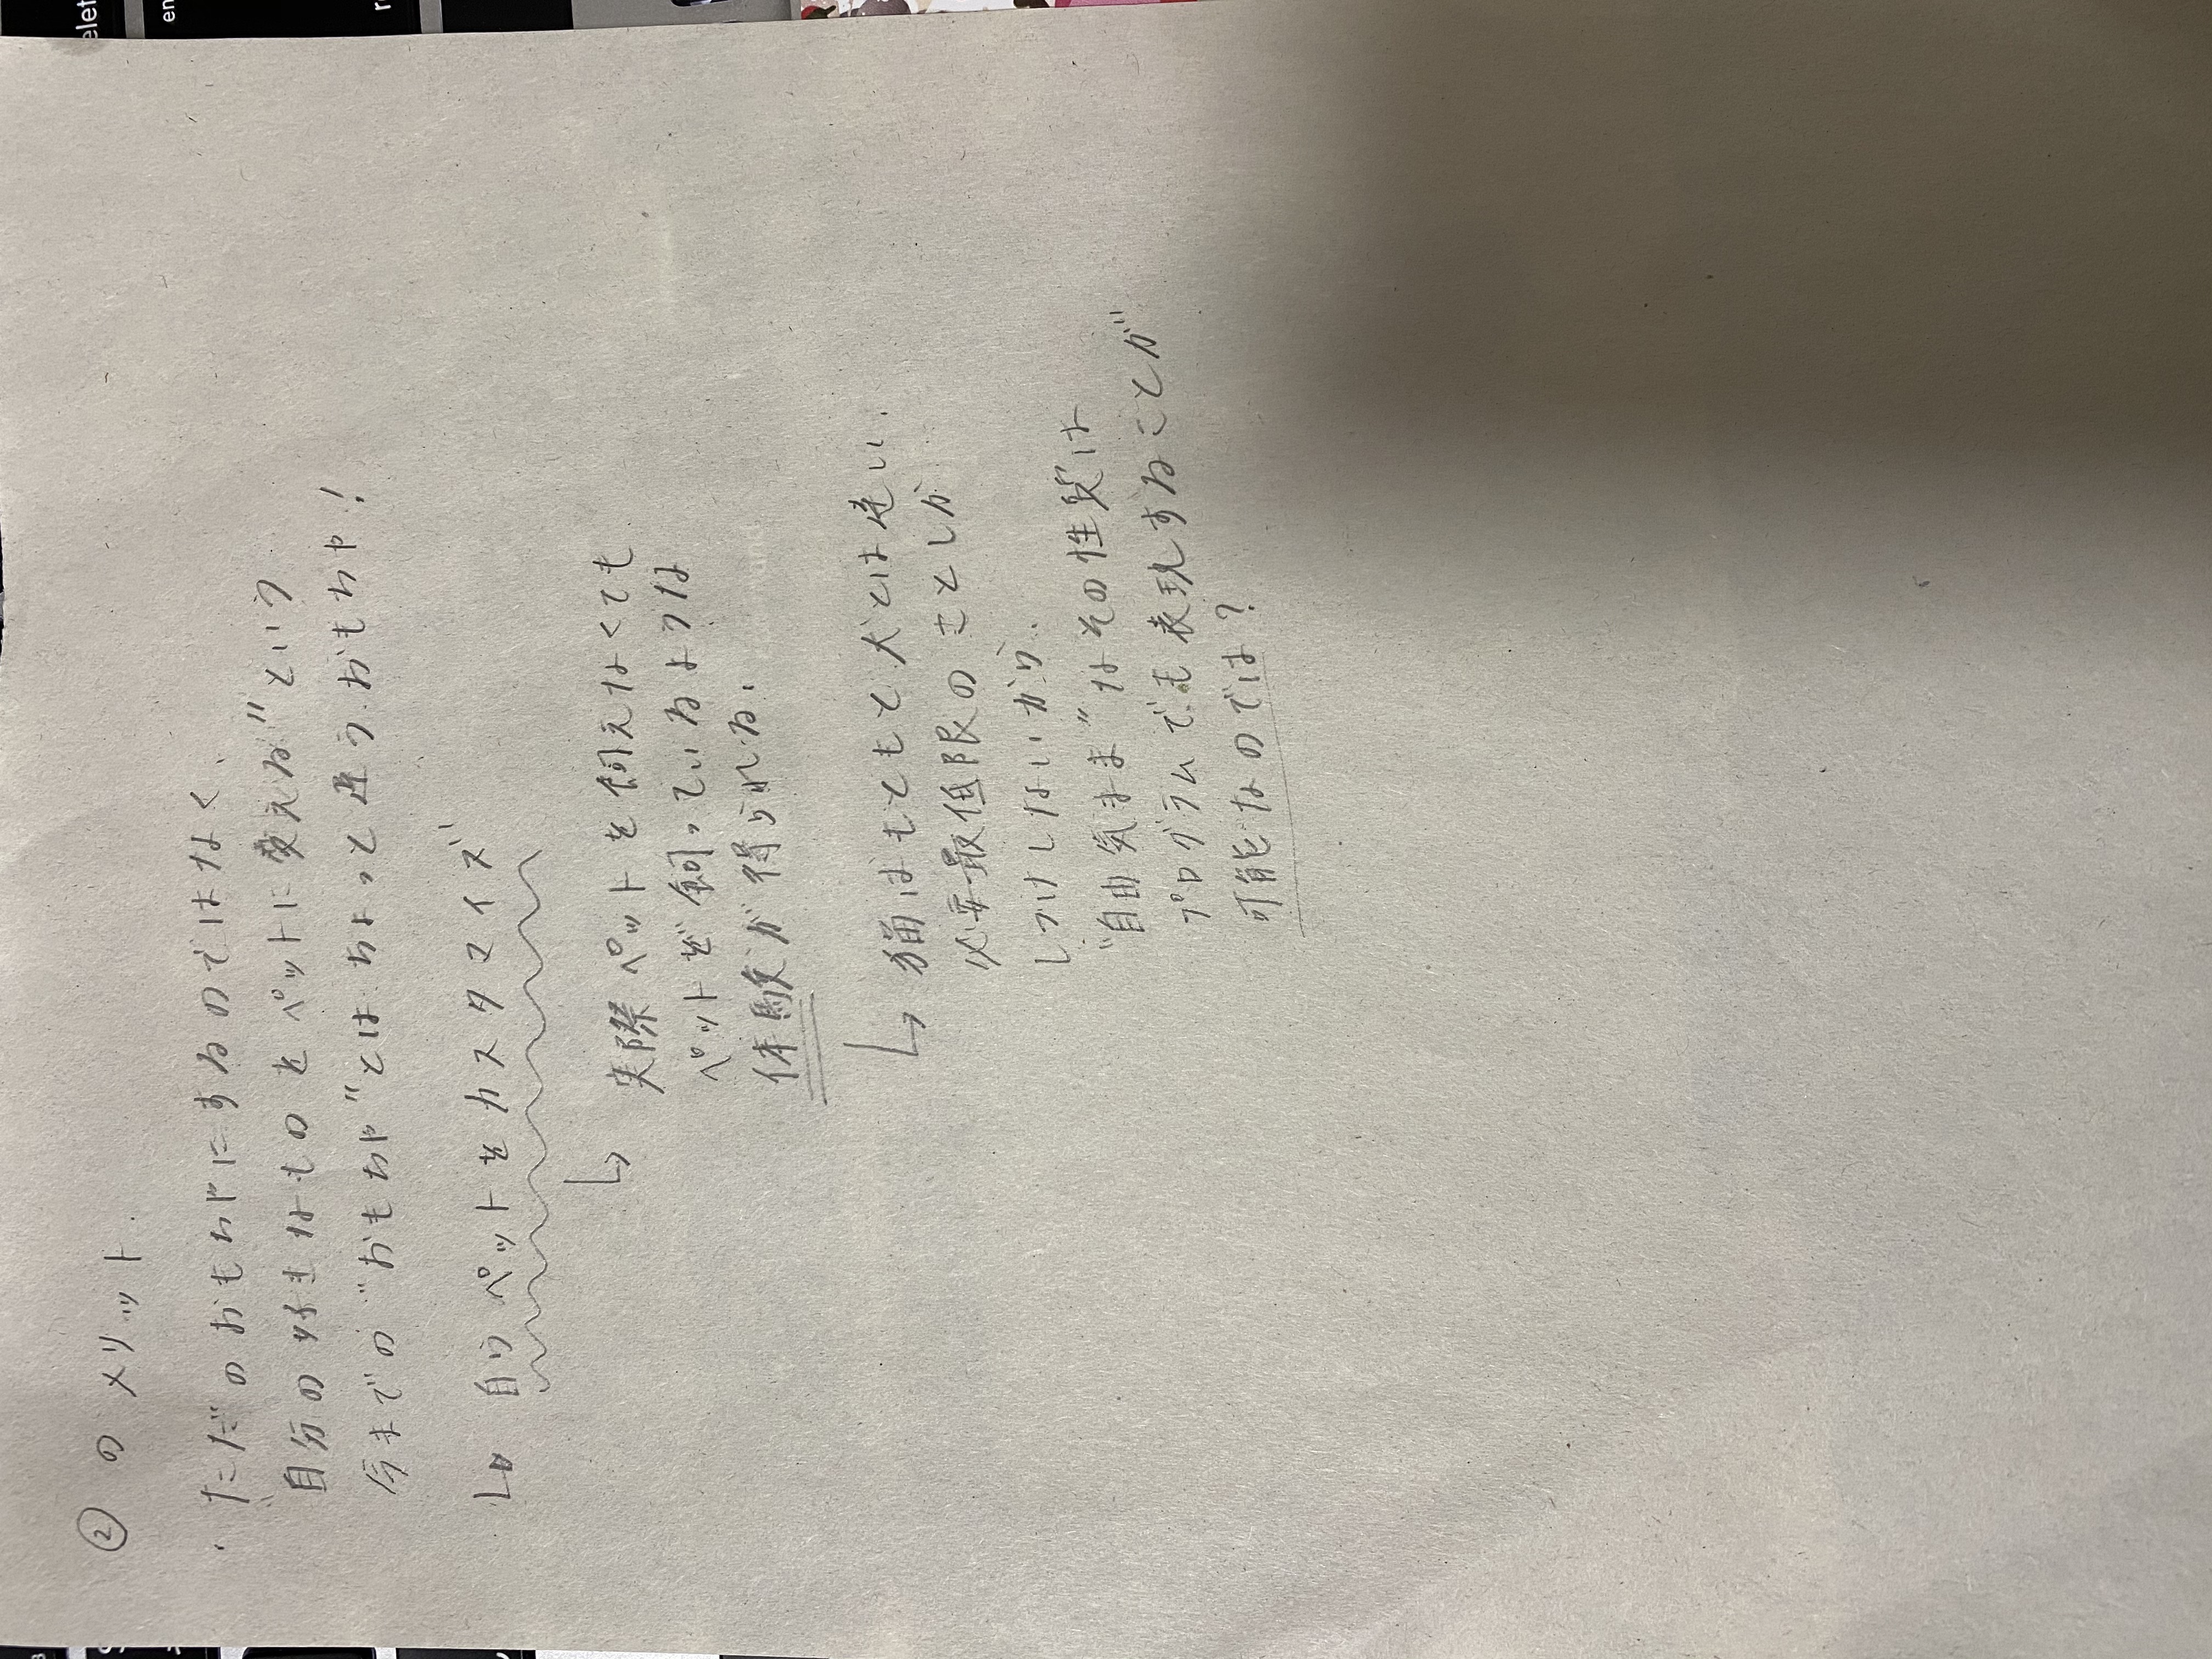 ② のメリット.
・ただのおもちゃにするのではなく、
"自分の好きなものをペットに変える"という
今までの"おもちゃ"とはちょっと違うおもちゃ!
↳ 自らペットをカスタマイズ
↳ 実際ペットを飼えなくても
ペットを飼っているような
体験が得られる.
↳ 猫はもともと犬とは違い、
必要最低限のことしか
しつけしないから、
"自由気まま"なその性質は
プログラムでも表現することが
可能なのでは?
elet
en